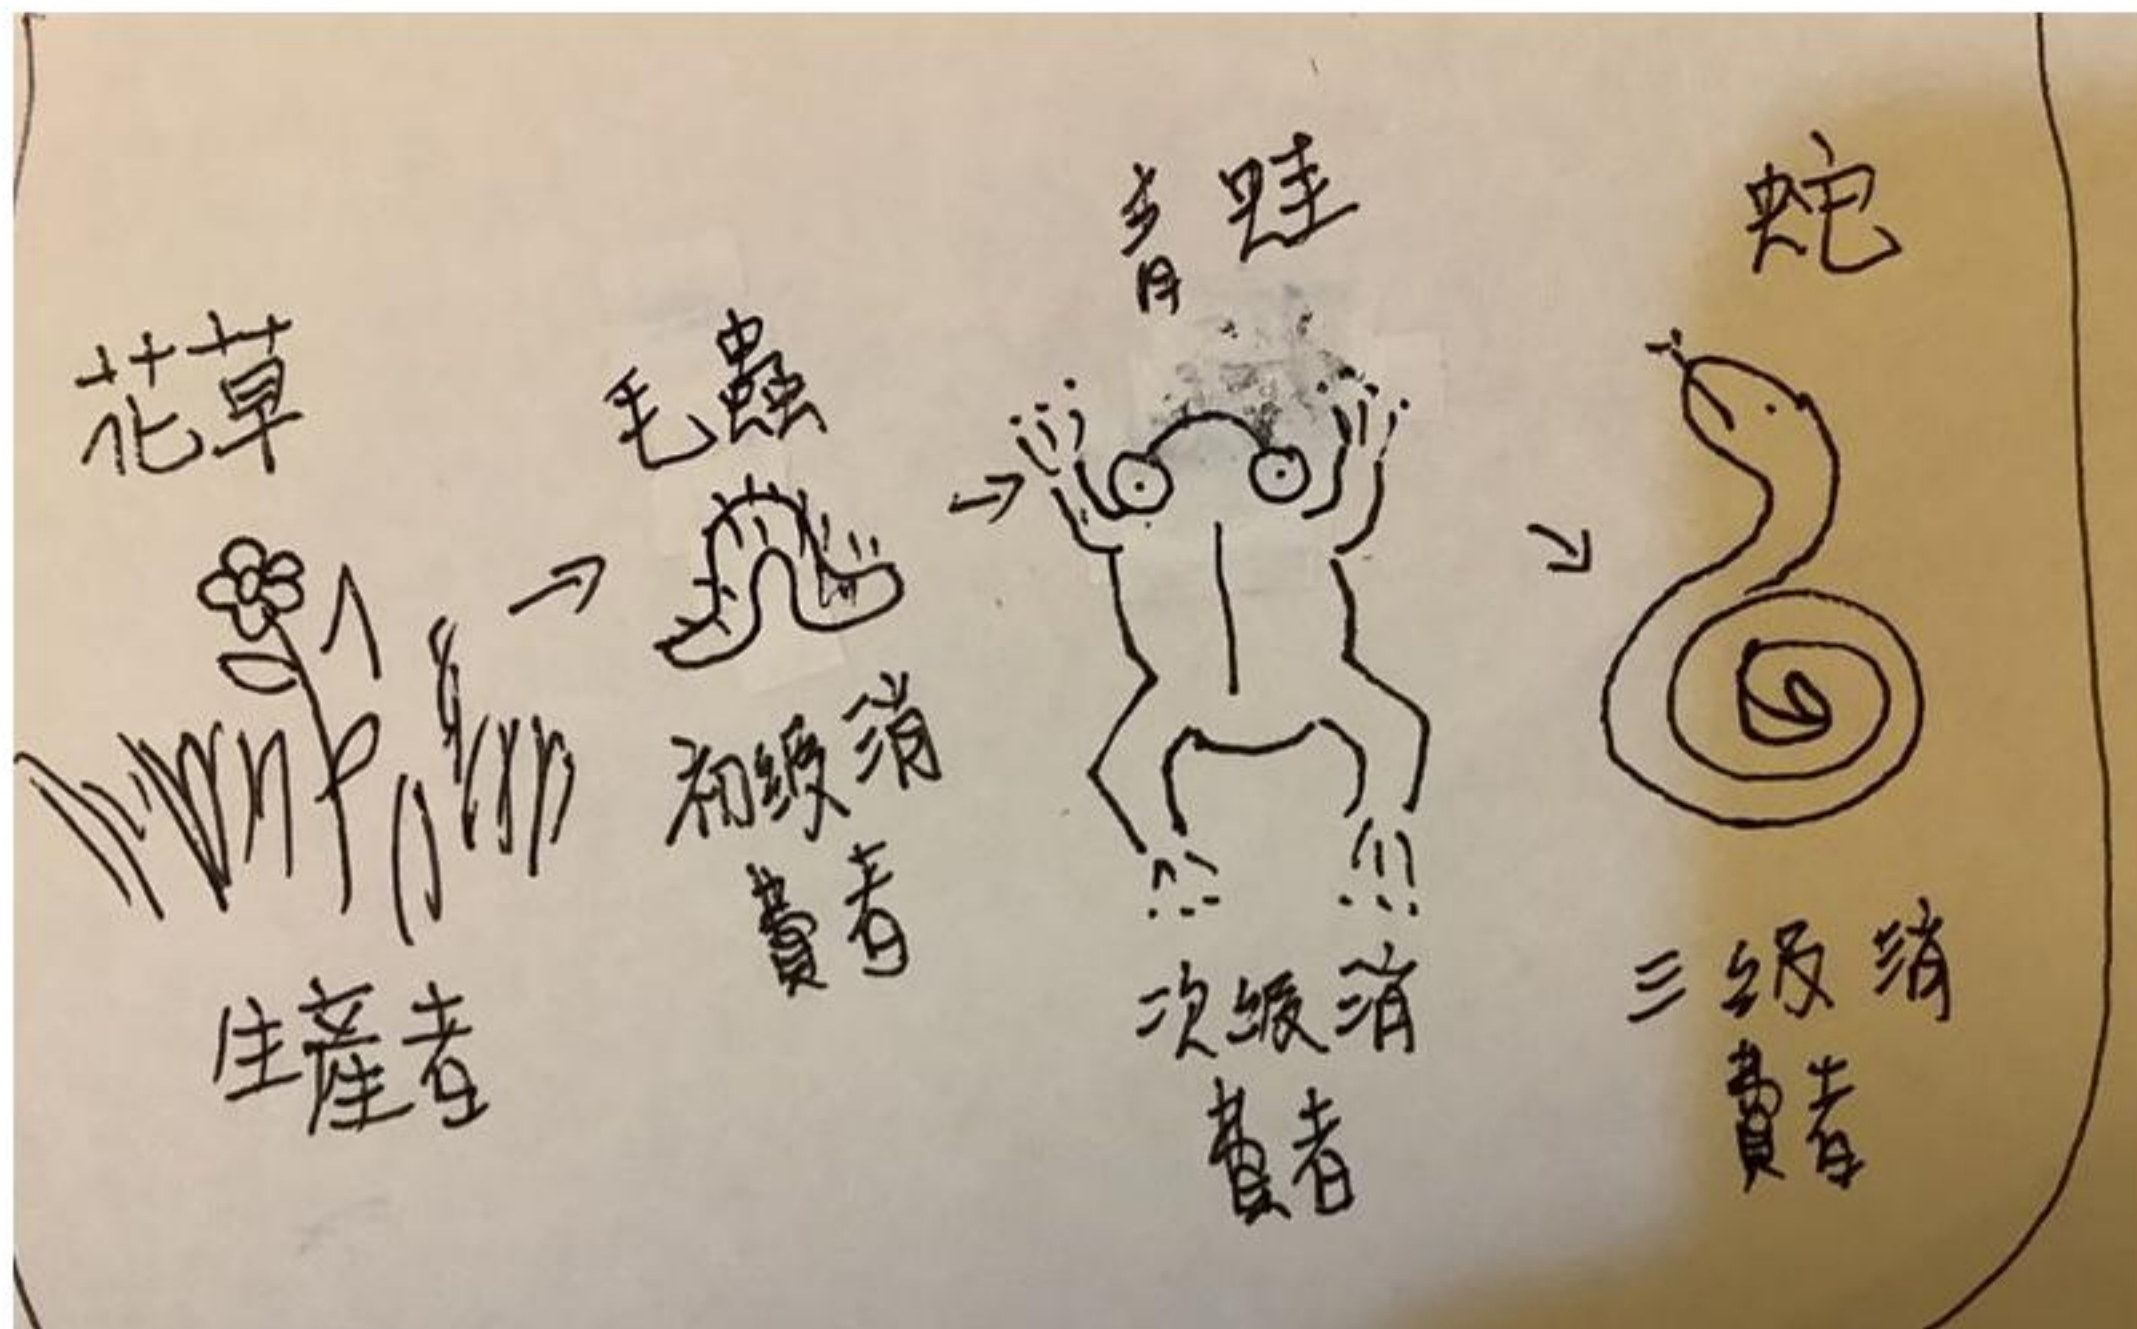 花草
生產者
毛蟲
初級消
費者
青蛙
次級消
費者
蛇
三級消
費者